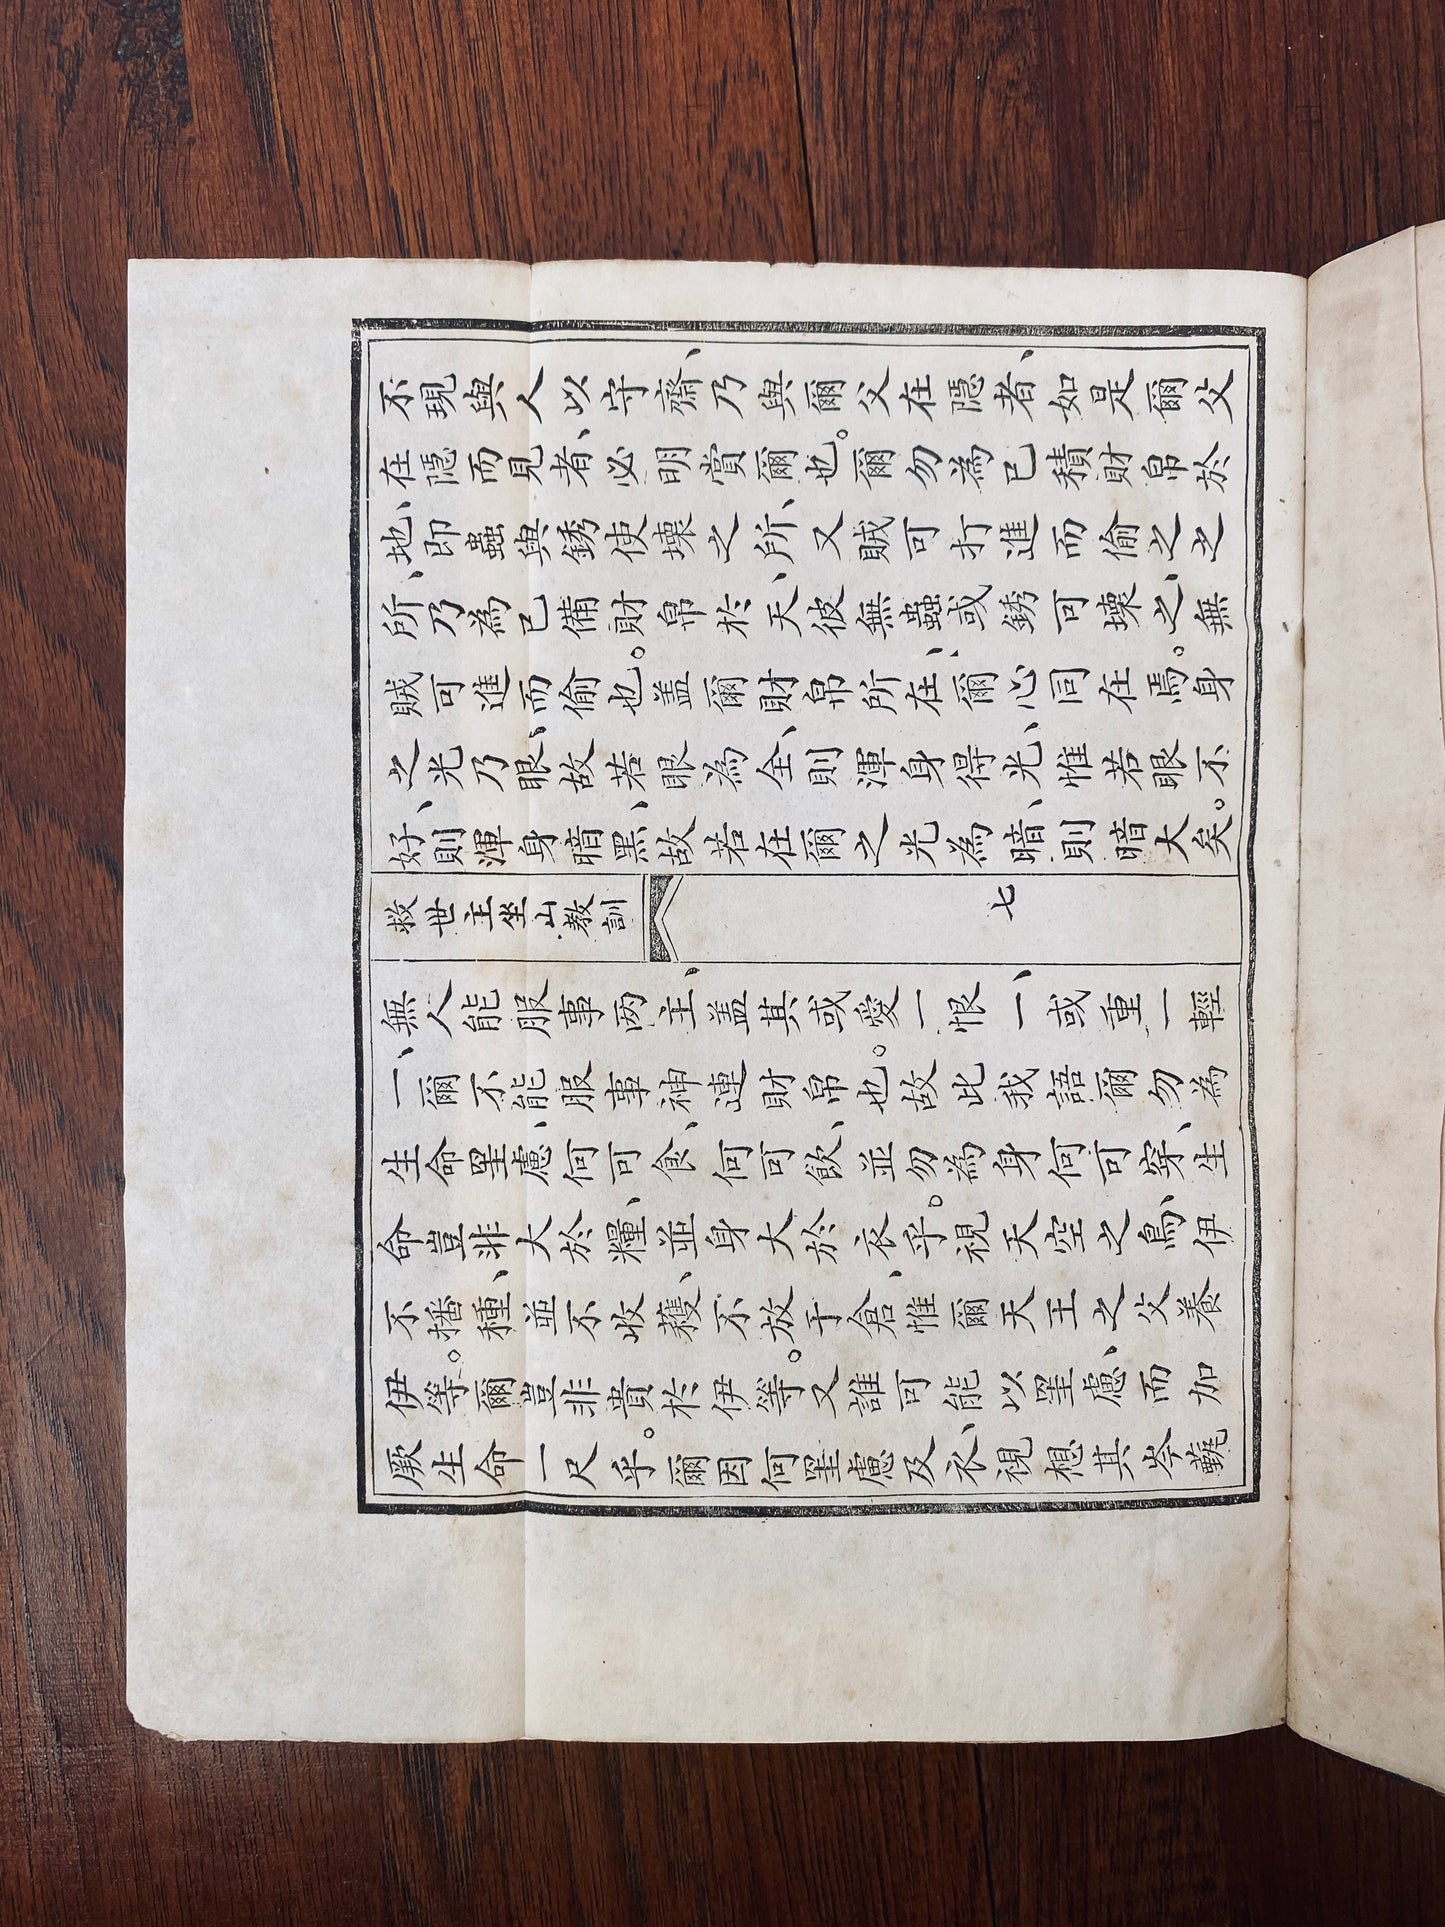 不現與人以守齋、乃與爾父在隱者、如是爾父
在隱而見者、必明賞爾也。爾勿為已積財帛於
地、即蟲與銹使壞之所、又賊可打進而偷之之
所、乃為已備財帛於天、彼無蟲或銹可壞之、無
賊可進而偷也。盖爾財帛所在、爾心同在焉。身
之光乃眼、故若眼為全、則渾身得光、惟若眼不
好、則渾身暗黑、故若在爾之光為暗、則暗大矣。
救世主坐山教訓
七
無人能服事两主、盖其或愛一恨一、或重一輕
一、爾不能服事神連財帛也。故此我語爾勿為
生命罣慮、何可食、何可飲、並勿為身何可穿、生
命豈非大於糧、並身大於衣乎。視天空之鳥、伊
不播種、並不收穫、不放于倉、惟爾天王之父養
伊等。爾豈非貴於伊等。又誰可能以罣慮、而加
厥生命一尺乎。爾因何罣慮及衣、視想其岑